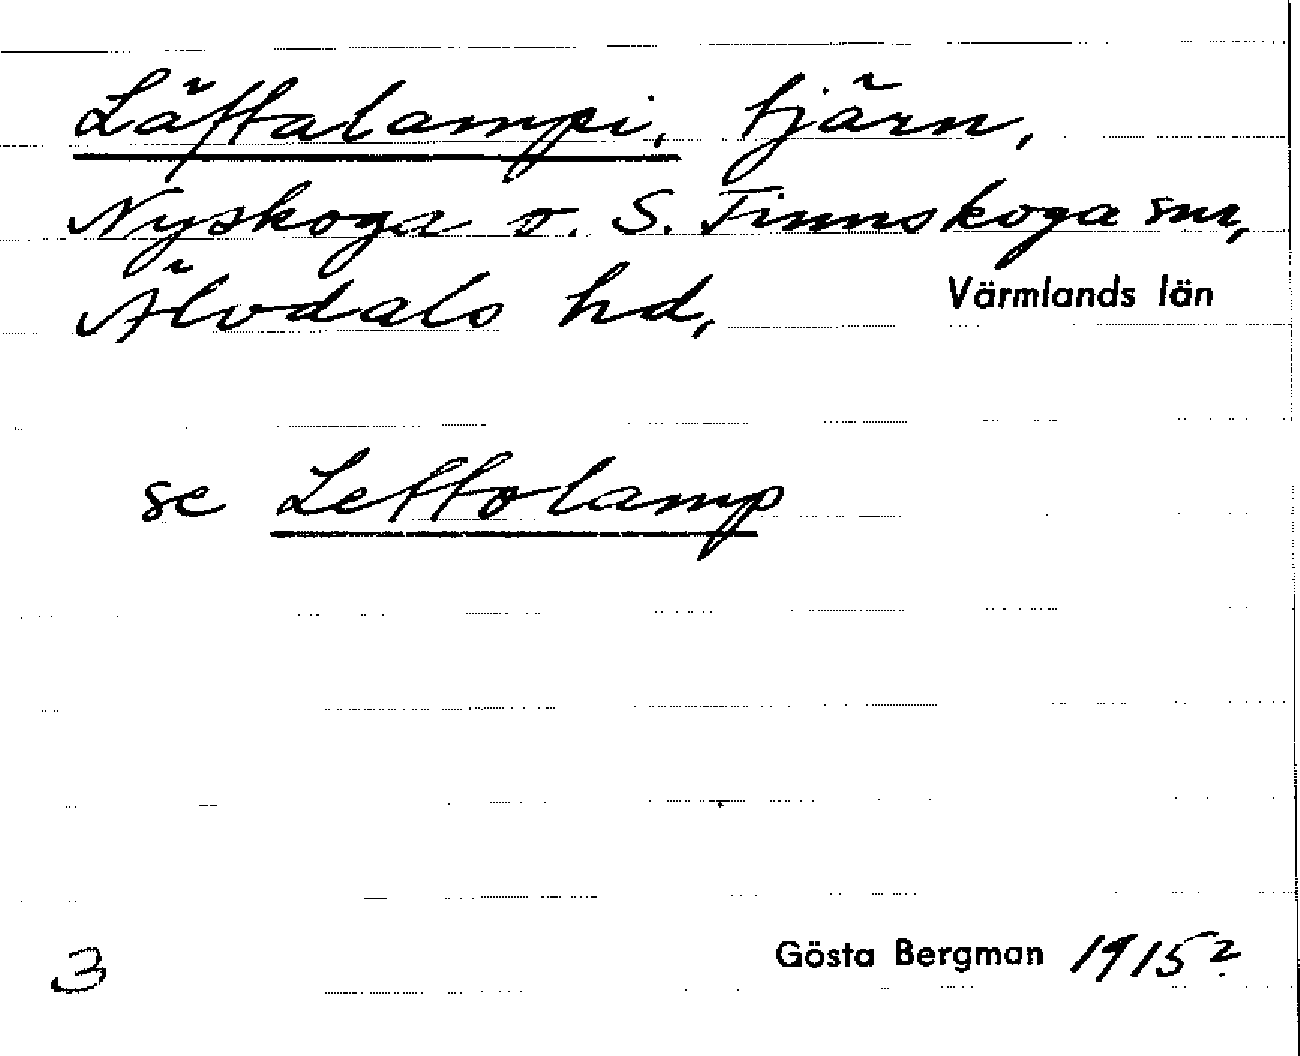 Läftalampi, tjärn,
Nyskoga o. S. Finnskoga snr,
Älvdals hd, Värmlands län
se Leftolamp
3 Gösta Bergman 1915?